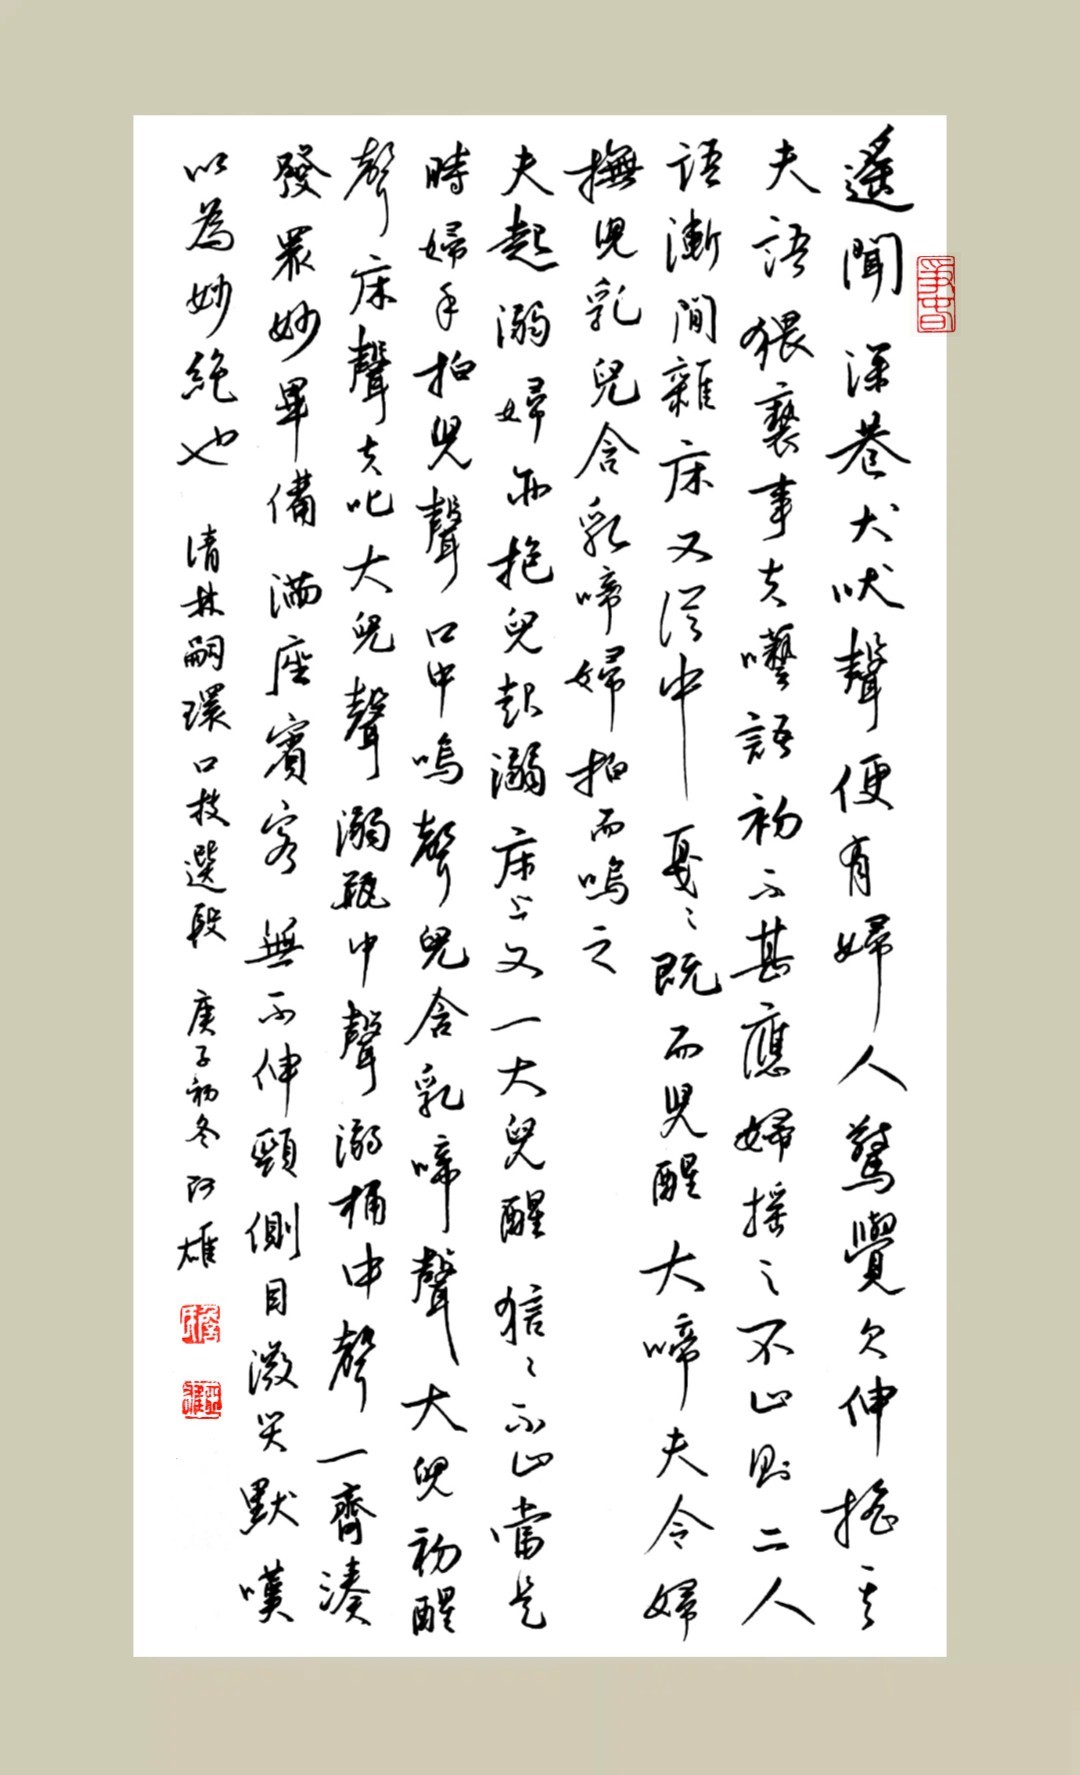 遙聞深巷犬吠聲便有婦人驚覺欠伸搖其
夫語猥褻事夫囈語初不甚應婦搖之不止則二人
語漸間雜床又從中戛〻既而兒醒大啼夫令婦
撫兒乳兒含乳啼婦拍而嗚之
夫起溺婦亦抱兒起溺床上又一大兒醒狺〻不止當是
時婦手拍兒聲口中嗚聲兒含乳啼聲大兒初醒
聲床聲夫叱大兒聲溺瓶中聲溺桶中聲一齊湊
發眾妙畢備滿座賓客無不伸頸側目微笑默嘆
以為妙絕也 清林嗣環口技選段 庚子初冬 阿雄